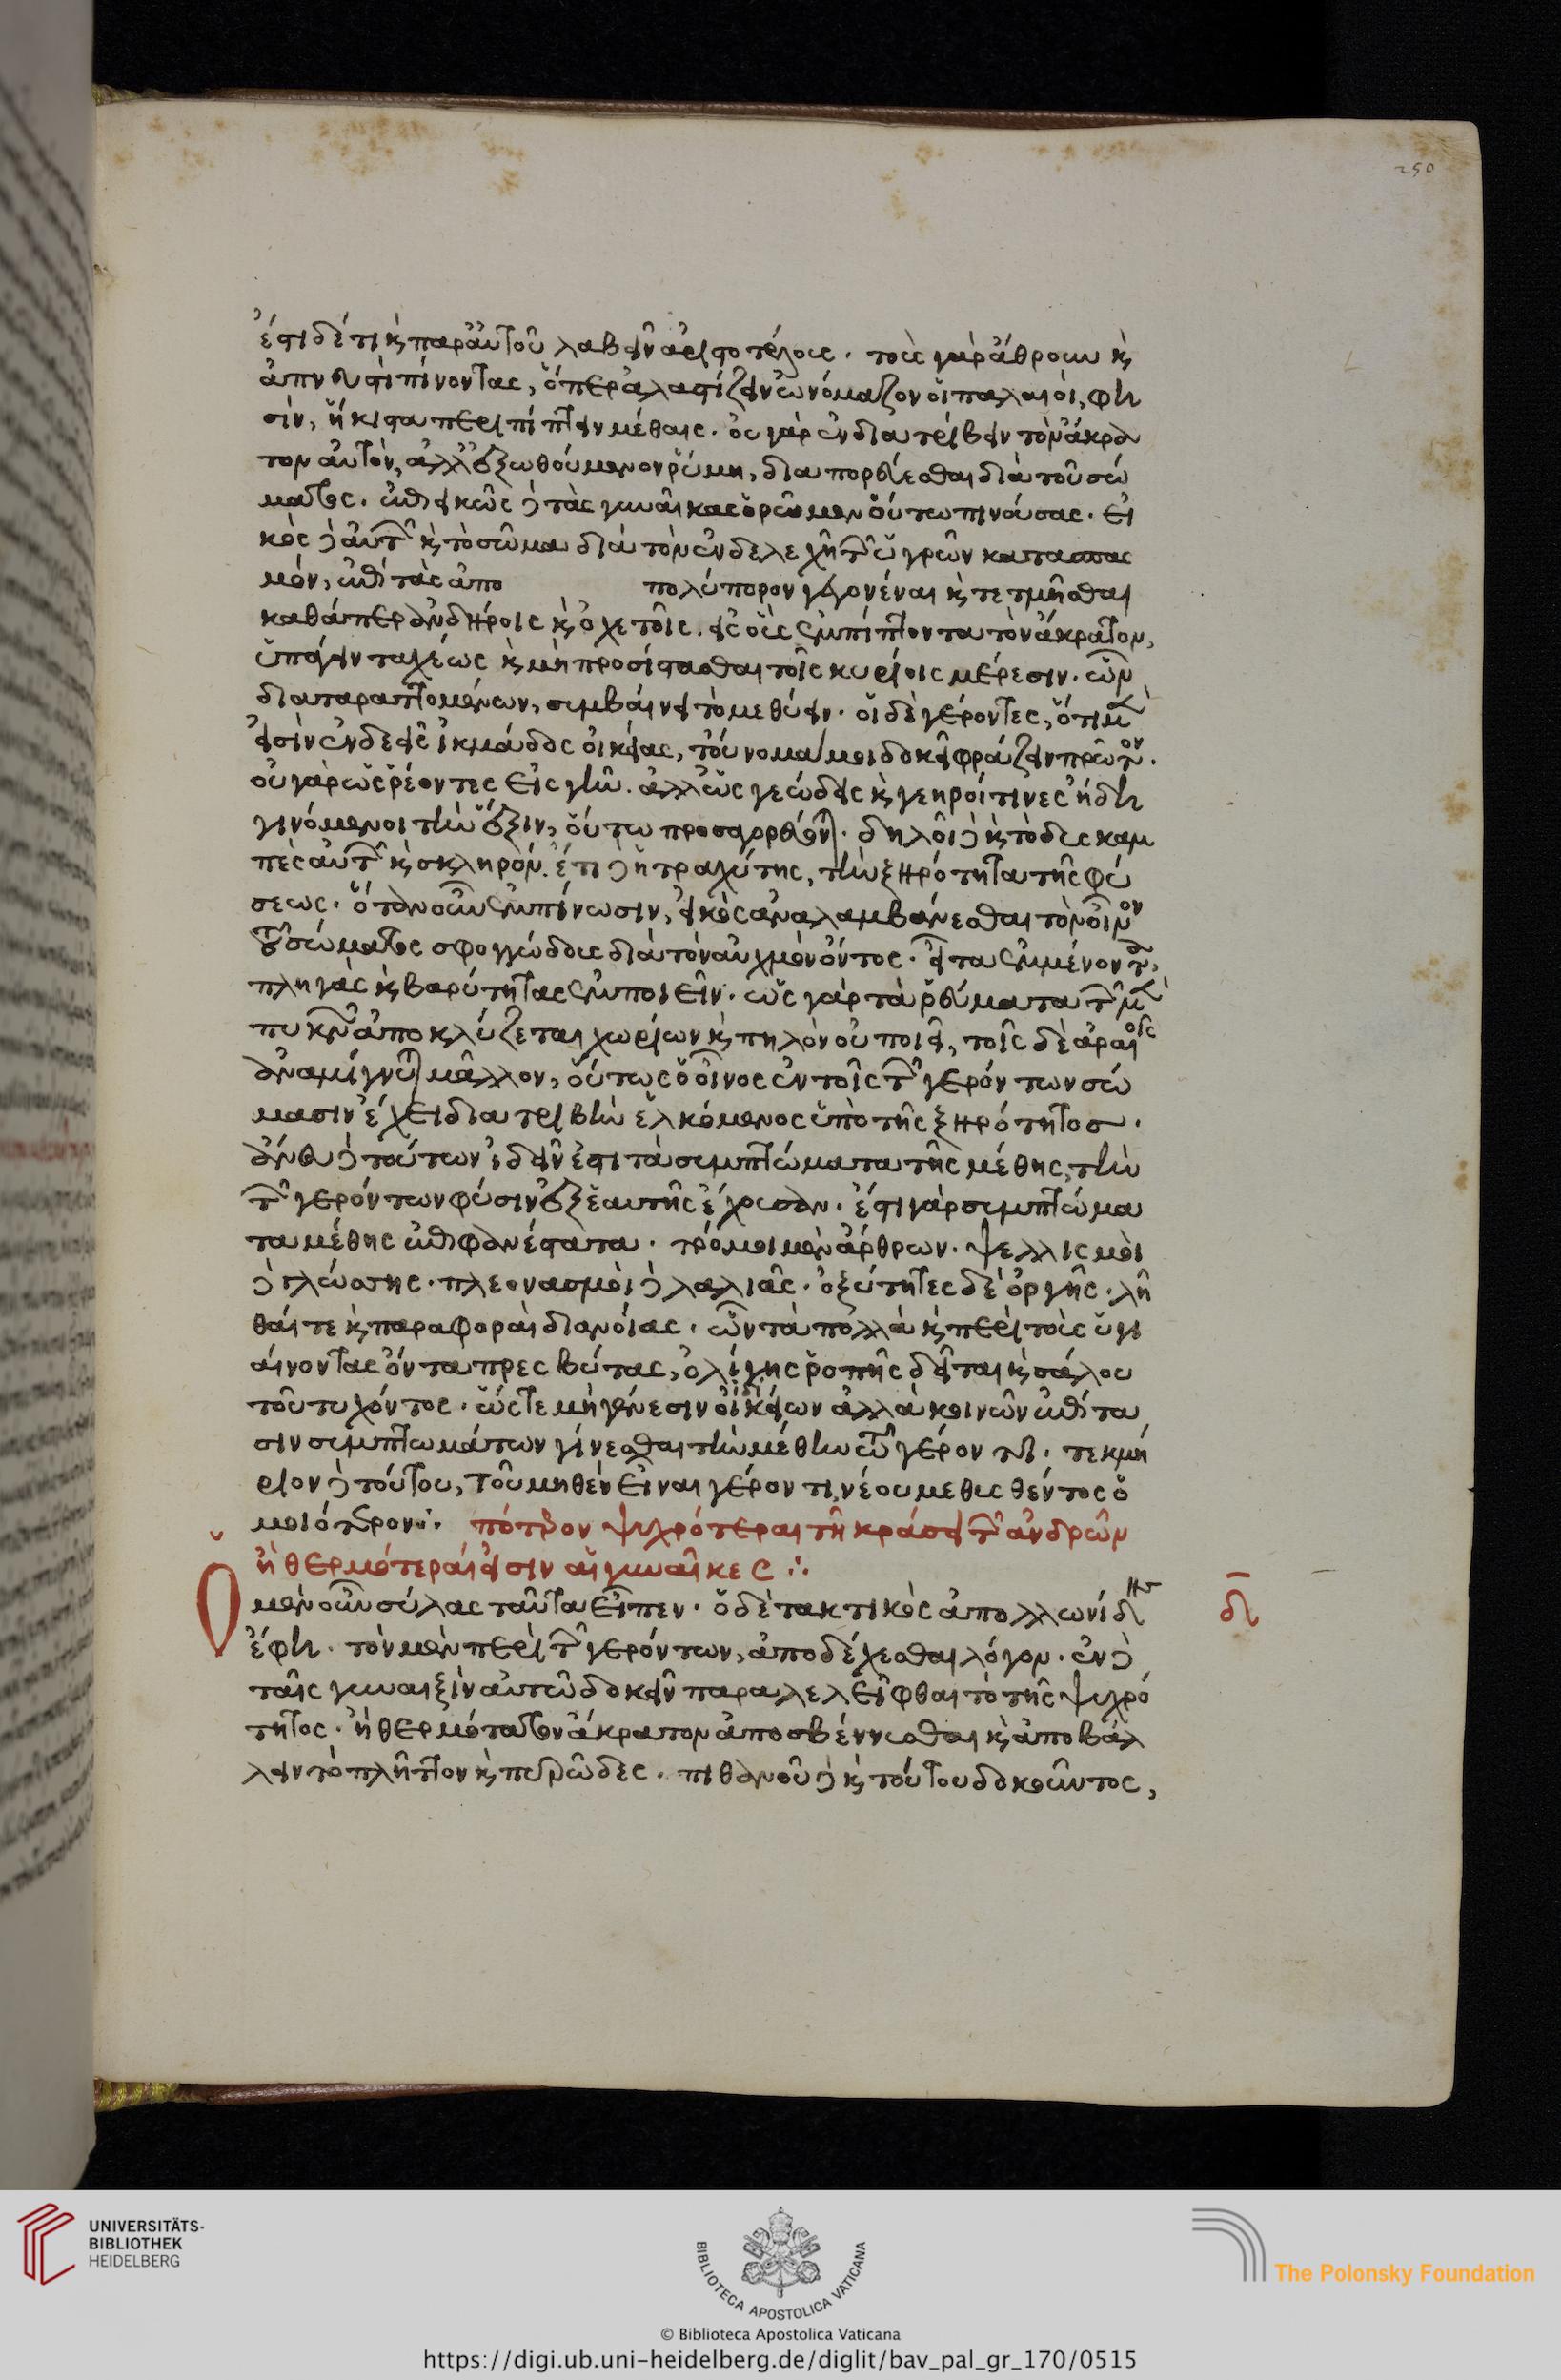 250
ἔστι δέ τι καὶ παρ' αὐτοῦ λαβεῖν ἀριστοτέλους. τοὺς γὰρ ἄθρουν καὶ
ἀπνευστὶ πίνοντας, ὅπερ ἀλαστίζειν ὠνόμαζον οἱ παλαιοί, φη
σὶν, ἥκιστα περιπίπτειν μέθαις. οὐ γὰρ ἐνδιατρίβειν τὸν ἄκρα
τον αὐτόν, ἀλλ' ἐξωθούμενον ῥύμῃ, διαπορεύεσθαι διὰ τοῦ σώ
ματος. ἐπιεικῶς δὲ τὰς γυναῖκας ὁρῶμεν οὕτω πινούσας. εἰ
κὸς δὲ αὐτῶν καὶ τὸ σῶμα διὰ τὸν ἐνδελεχῆ τῶν ὑγρῶν κατασπασ
μὸν, ἐπὶ τὰς ἀπο πολύπορον γεγονέναι καὶ τετμῆσθαι
καθάπερ ἀνδήροις καὶ ὀχετοῖς. εἰς οὓς ἐμπίπτοντα τὸν ἄκρατον,
ὑπάγειν ταχέως καὶ μὴ προσίστασθαι τοῖς κυρίοις μέρεσιν. ὧν
διαταραττομένων, συμβαίνει τὸ μεθύειν. οἱ δὲ γέροντες, ὅτι μὲν
εἰσὶν ἐνδεεῖς ἰκμάδος οἰκείας, τοὔνομά μοι δοκεῖ φράζειν πρῶτον.
οὐ γὰρ ὡς ῥέοντες εἰς γῆν. ἀλλ' ὡς γεώδεις καὶ γεηροί τινες ἤδη
γινόμενοι τὴν ἕξιν, οὕτω προσαγορεύονται. δηλοῖ δὲ καὶ τὸ δυσκαμ
πὲς αὐτῶν καὶ σκληρόν. ἔτι δὲ ἡ τραχύτης, τὴν ξηρότητα τῆς φύ
σεως. ὅταν οὖν ἐμπίνωσιν, εἰκὸς ἀναλαμβάνεσθαι τὸν οἶνον
τοῦ σώματος σφογγώδους διὰ τὸν αὐχμὸν ὄντος. εἶτα ἐμμένοντα,
πληγὰς καὶ βαρύτητας ἐμποιεῖν. ὡς γὰρ τὰ ῥεύματα τῶν μὲν
πυκνῶν ἀποκλύζεται χωρίων καὶ πηλὸν οὐ ποιεῖ, τοῖς δὲ ἀραιοῖς
ἀναμίγνυται μᾶλλον, οὕτως ὁ οἶνος ἐν τοῖς τῶν γερόντων σώ
μασιν ἔχει διατριβὴν ἑλκόμενος ὑπὸ τῆς ξηρότητος.
ἄνευ δὲ τούτων ἰδεῖν ἔστι τὰ συμπτώματα τῆς μέθης, τὴν
τῶν γερόντων φύσιν ἐξ ἑαυτῆς ἔχουσαν. ἔστι γὰρ συμπτώμα
τα μέθης ἐπιφανέστατα. τρόμοι μὲν ἄρθρων. ψελλισμοὶ
δὲ γλώσσης. πλεονασμοὶ δὲ λαλιᾶς. ὀξύτητες δὲ ὀργῆς. λῆ
θαί τε καὶ παραφοραὶ διανοίας. ὧν τὰ πολλὰ καὶ περὶ τοὺς ὑγι
αίνοντας ὄντα πρεσβύτας, ὀλίγης ῥοπῆς δεῖται καὶ σάλου
τοῦ τυχόντος. ὥστε μὴ γένεσιν οἰκείων ἀλλὰ κοινῶν ἐπίτα
σιν συμπτωμάτων γίνεσθαι τὴν μέθην τῷ γέροντι. τεκμή
ριον δὲ τούτου, τοῦ μηθὲν εἶναι γέροντι νέου μεθυσθέντος ὁ
μοιότερον. πότερον ψυχρότεραι τῇ κράσει τῶν ἀνδρῶν
ἢ θερμότεραί εἰσιν αἱ γυναῖκες ∴
Ὁ μὲν οὖν σύλας ταῦτα εἶπεν. ὁ δὲ τακτικὸς ἀπολλωνίδης
ἔφη. τὸν μὲν περὶ τῶν γερόντων, ἀποδέχεσθαι λόγον. ἐν δὲ
ταῖς γυναιξὶν αὐτῷ δοκεῖν παραλελεῖφθαι τὸ τῆς ψυχρό
τητος. ᾗ θερμότατον ἄκρατον ἀποσβέννυσθαι καὶ ἀποβάλ
λειν τὸ πλῆττον καὶ πυρῶδες. πιθανοῦ δὲ καὶ τούτου δοκοῦντος,
δ
UNIVERSITÄTS-
BIBLIOTHEK
HEIDELBERG
BIBLIOTECA APOSTOLICA VATICANA
The Polonsky Foundation
© Biblioteca Apostolica Vaticana
https://digi.ub.uni-heidelberg.de/diglit/bav_pal_gr_170/0515